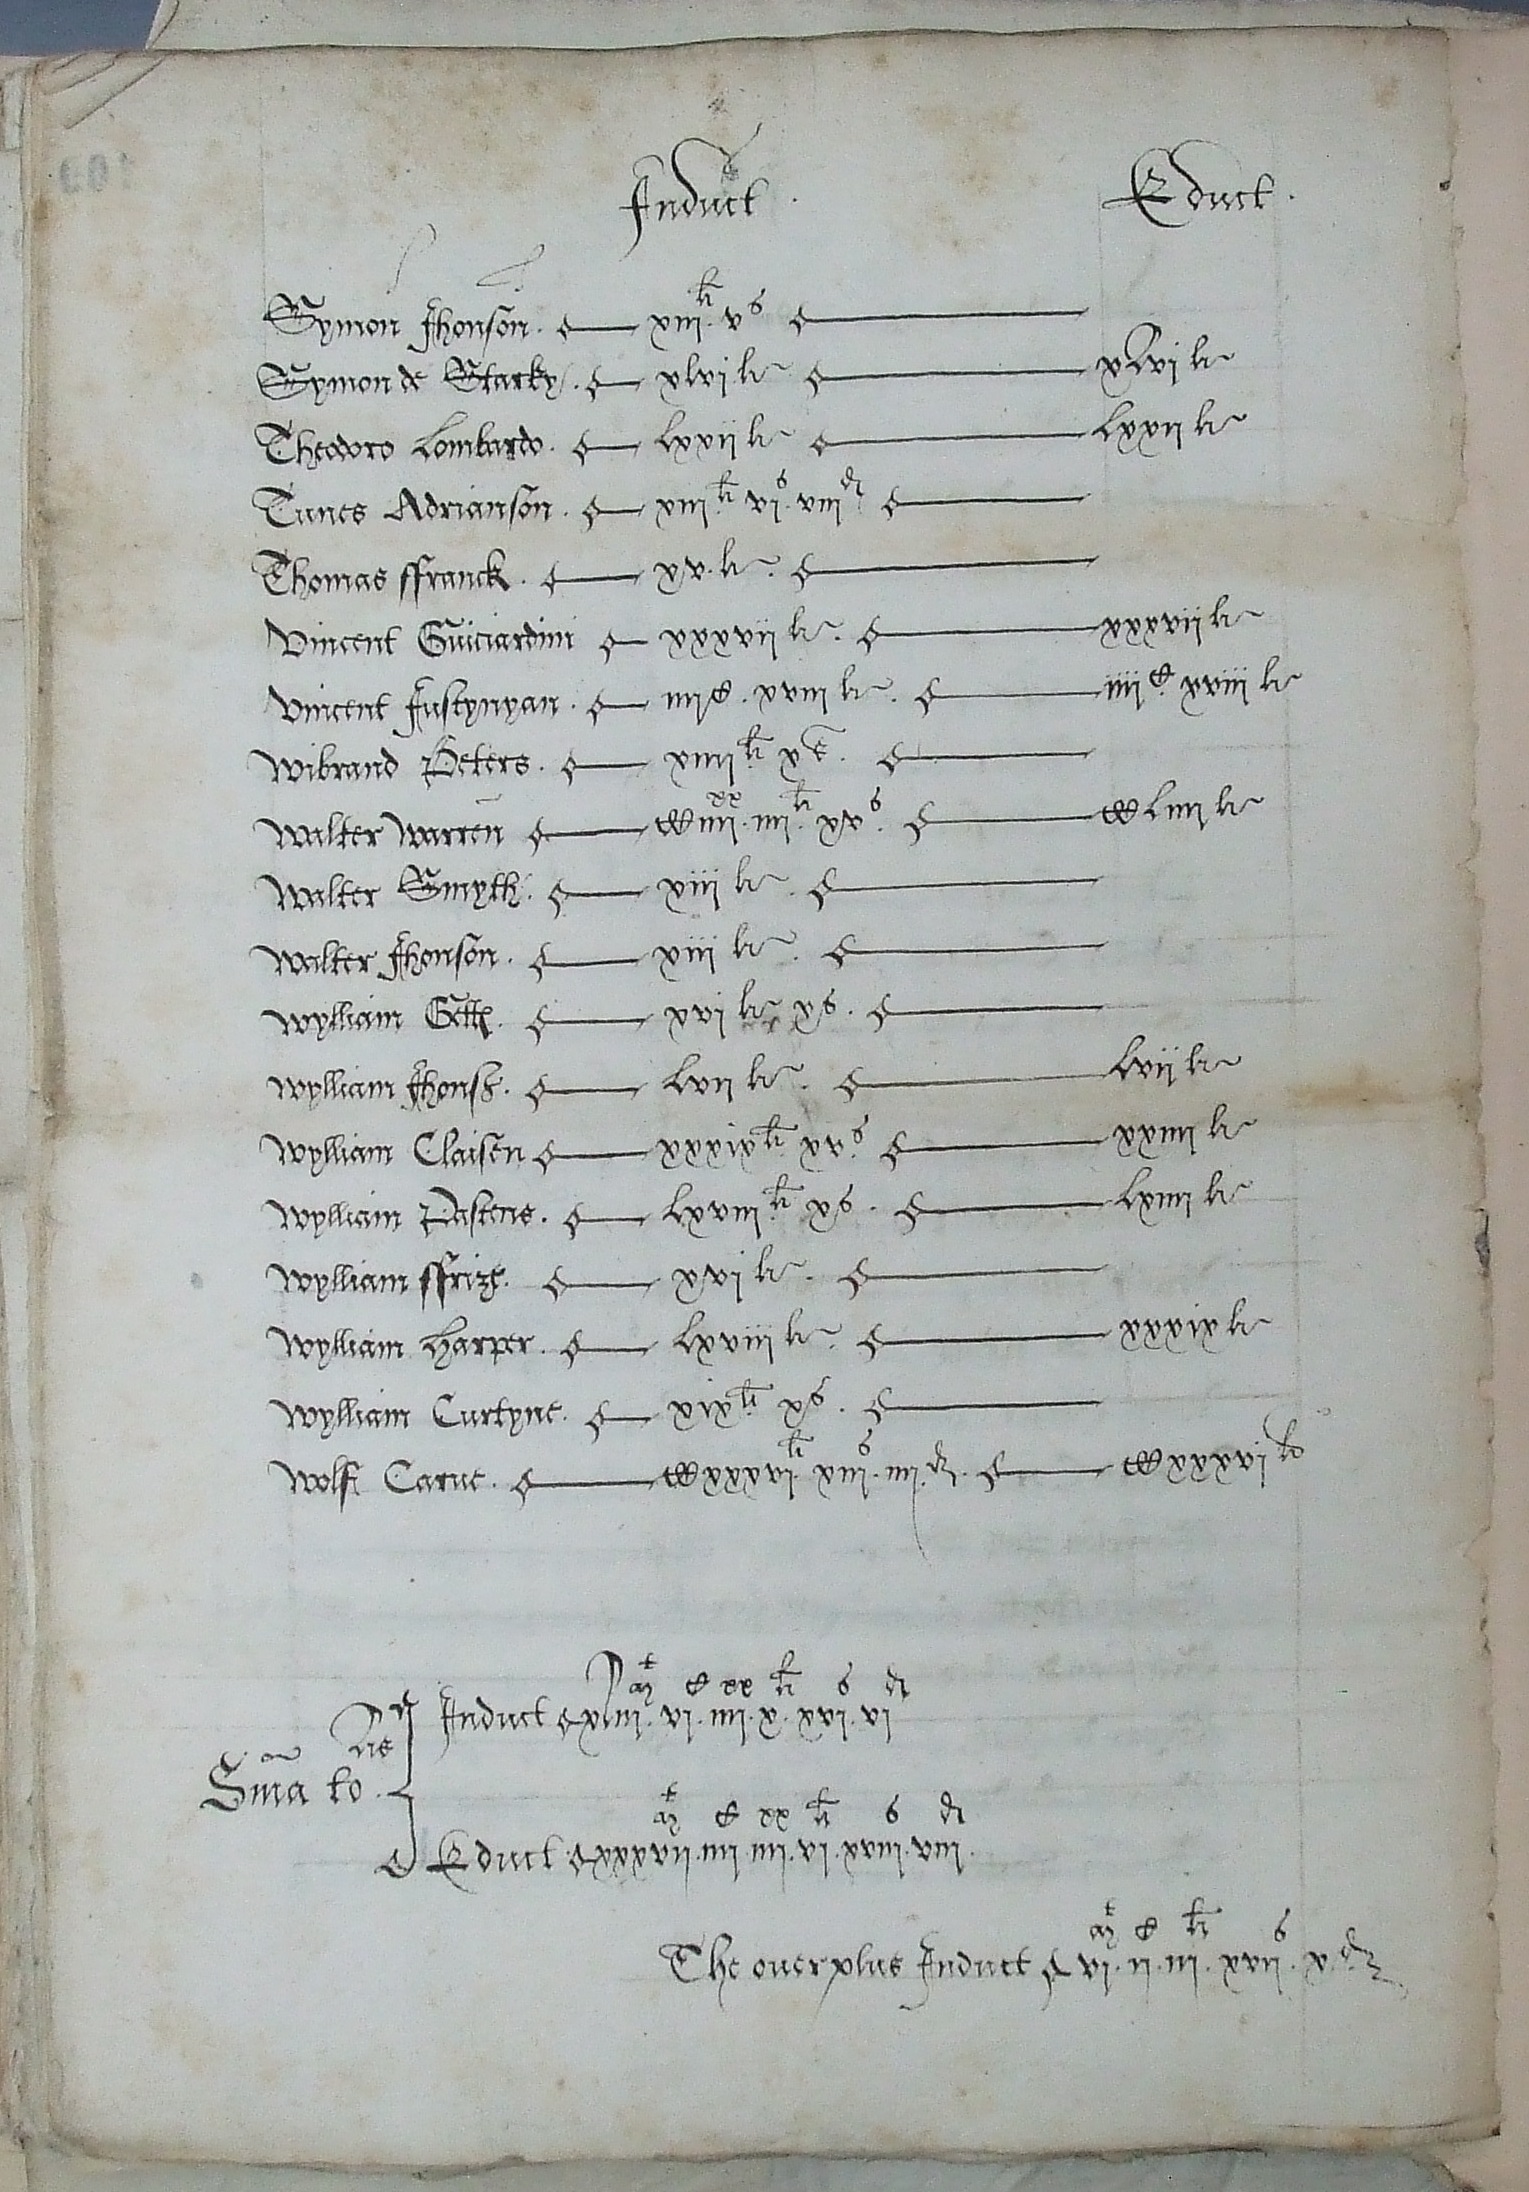 Induct. Educt.
Symon Jhonson. xiij li. v s
Symon de Starky. xlvi li xlvi li
Theodoro Lombardo. lxxii li lxxii li
Tunes Adrianson. xiij li. vi s. viij d
Thomas ffranck. xv. li.
Vincent Guiciardini xxxvii li. xxxvii li
Vincent Justynyan. iiij C. xviij li. iiij C. xviij li
Wibrand Peters. xiiij li. x s.
Walter Warren C iiij xx. iiij li. xv s. C liiij li
Walter Smyth. xiij li.
Walter Jhonson. xiij li.
Wylliam xvi li x s.
Wylliam Jhons. lvii li. lvii li
Wylliam Claisen xxxix li. xv s. xxiiij li
Wylliam lxviij li. x s. lxiiij li
Wylliam ffrize. xvi li.
Wylliam Harper. lxviij li. xxxix li
Wylliam Curtyne. xix li. x s.
Wolf Carue. C xxxvi li. xiij s. iiij d. C xxxvi li
Sma to lis
Induct xliij Ml. vi C. iiij xx. x li. xvi s. vi d
Educt xxxvii Ml. iiij C. iiij xx. vi li. xviij s. viij d.
The ouerplus Induct vi Ml. ii C. iij li. xvii s. x. d.